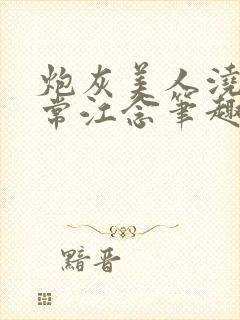 炮灰美人澆
常江念筆趣
黯晋